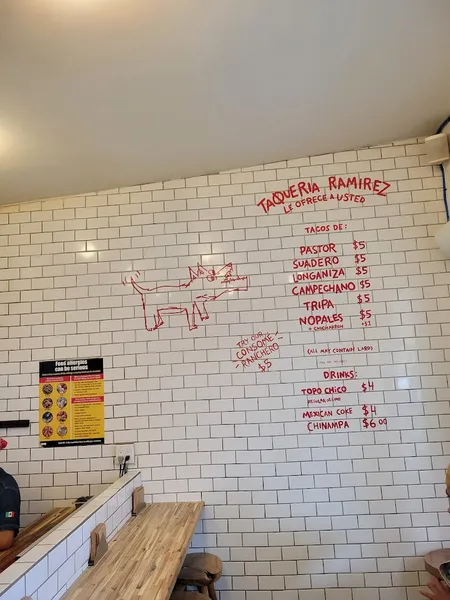 TAQUERIA RAMIREZ
LE OFRECE A USTED
TACOS DE:
PASTOR $5
SUADERO $5
LONGANIZA $5
CAMPECHANO $5
TRIPA $5
NOPALES $5
+ CHICHARRON +$1
(ALL MAY CONTAIN LARD)
TRY OUR
CONSOME
RANCHERO
$5
DRINKS:
TOPO CHICO $4
MEXICAN COKE $4
CHINAMPA $6.00
Food allergies
can be serious